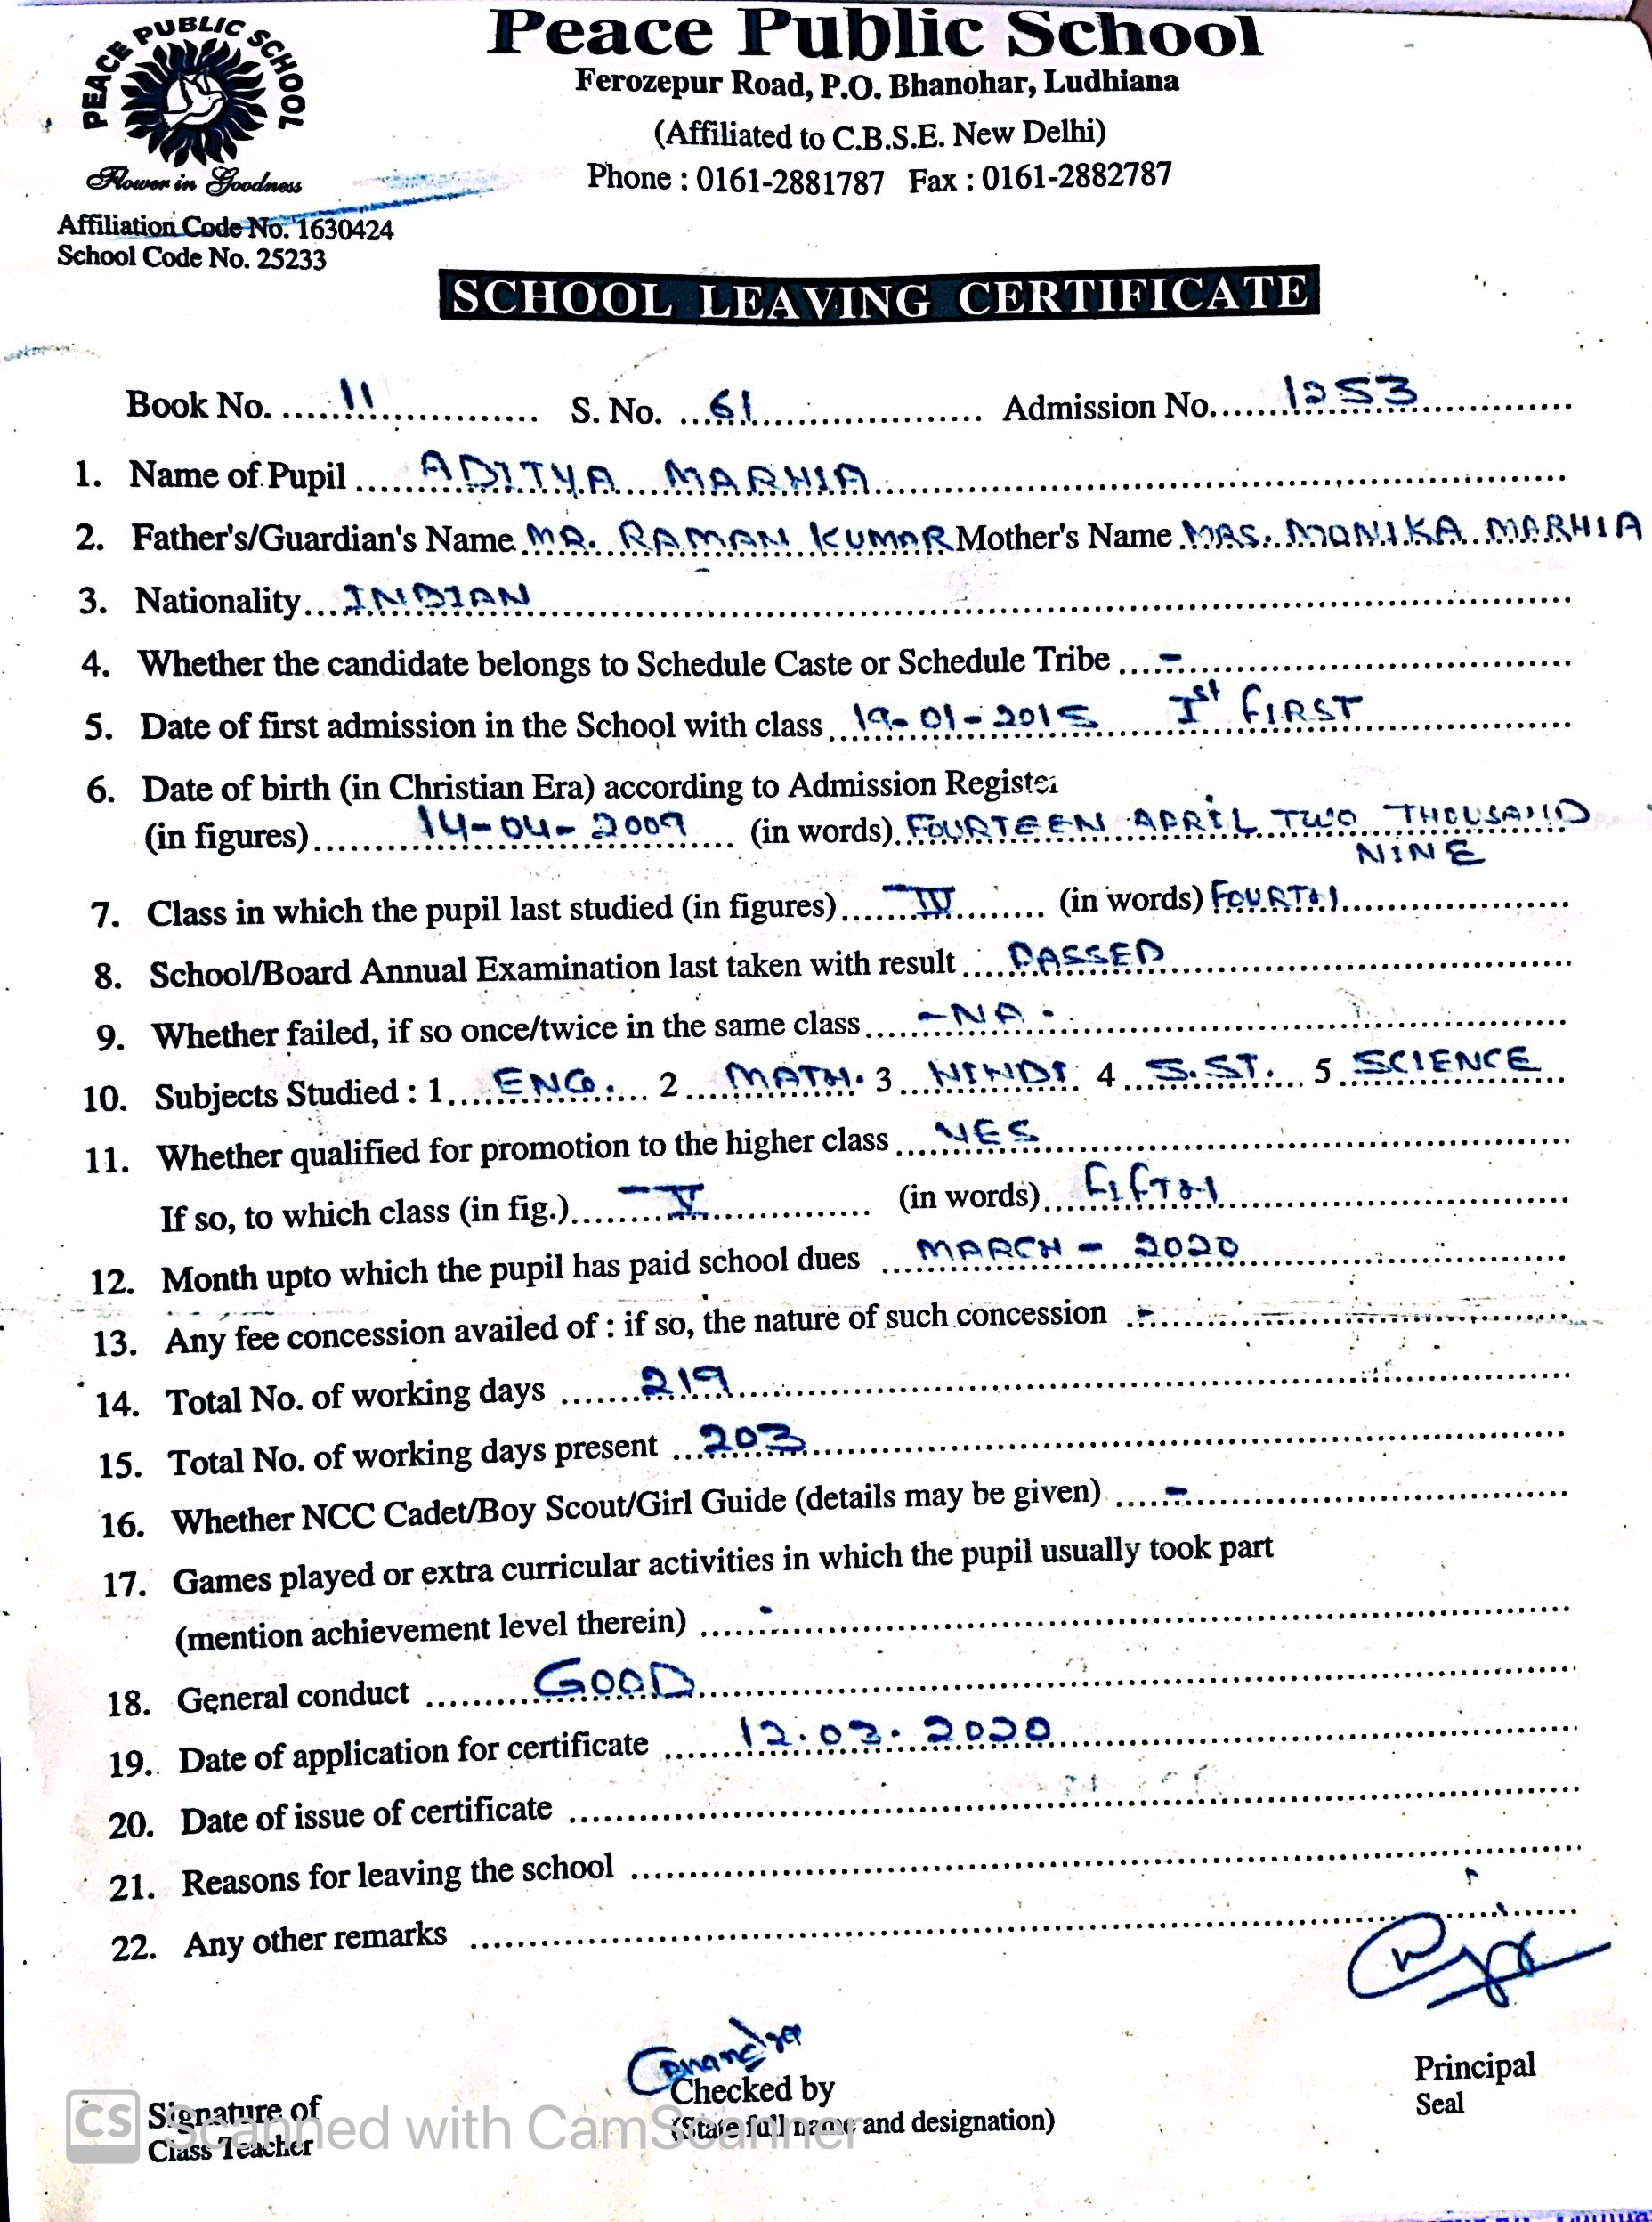 PEACE PUBLIC SCHOOL
Flower in Goodness
Peace Public School
Ferozepur Road, P.O. Bhanohar, Ludhiana
(Affiliated to C.B.S.E. New Delhi)
Phone : 0161-2881787 Fax : 0161-2882787
Affiliation Code No. 1630424
School Code No. 25233
SCHOOL LEAVING CERTIFICATE
Book No. 11 S. No. 61 Admission No. 1253
1. Name of Pupil ADITYA MARHIA
2. Father's/Guardian's Name MR. RAMAN KUMAR Mother's Name MRS. MONIKA MARHIA
3. Nationality INDIAN
4. Whether the candidate belongs to Schedule Caste or Schedule Tribe -
5. Date of first admission in the School with class 19-01-2015 Ist FIRST
6. Date of birth (in Christian Era) according to Admission Register
(in figures) 14-04-2009 (in words) FOURTEEN APRIL TWO THOUSAND
NINE
7. Class in which the pupil last studied (in figures) IV (in words) FOURTH
8. School/Board Annual Examination last taken with result PASSED
9. Whether failed, if so once/twice in the same class -NA-
10. Subjects Studied : 1 ENG. 2 MATH. 3 HINDI 4 S.ST. 5 SCIENCE
11. Whether qualified for promotion to the higher class YES
If so, to which class (in fig.) V (in words) FIFTH
12. Month upto which the pupil has paid school dues MARCH - 2020
13. Any fee concession availed of : if so, the nature of such concession -
14. Total No. of working days 219
15. Total No. of working days present 203
16. Whether NCC Cadet/Boy Scout/Girl Guide (details may be given) -
17. Games played or extra curricular activities in which the pupil usually took part
(mention achievement level therein) -
18. General conduct GOOD
19. Date of application for certificate 12.03.2020
20. Date of issue of certificate
21. Reasons for leaving the school
22. Any other remarks
Signature of
Class Teacher
Checked by
(State full name and designation)
Principal
Seal
CS Scanned with CamScanner